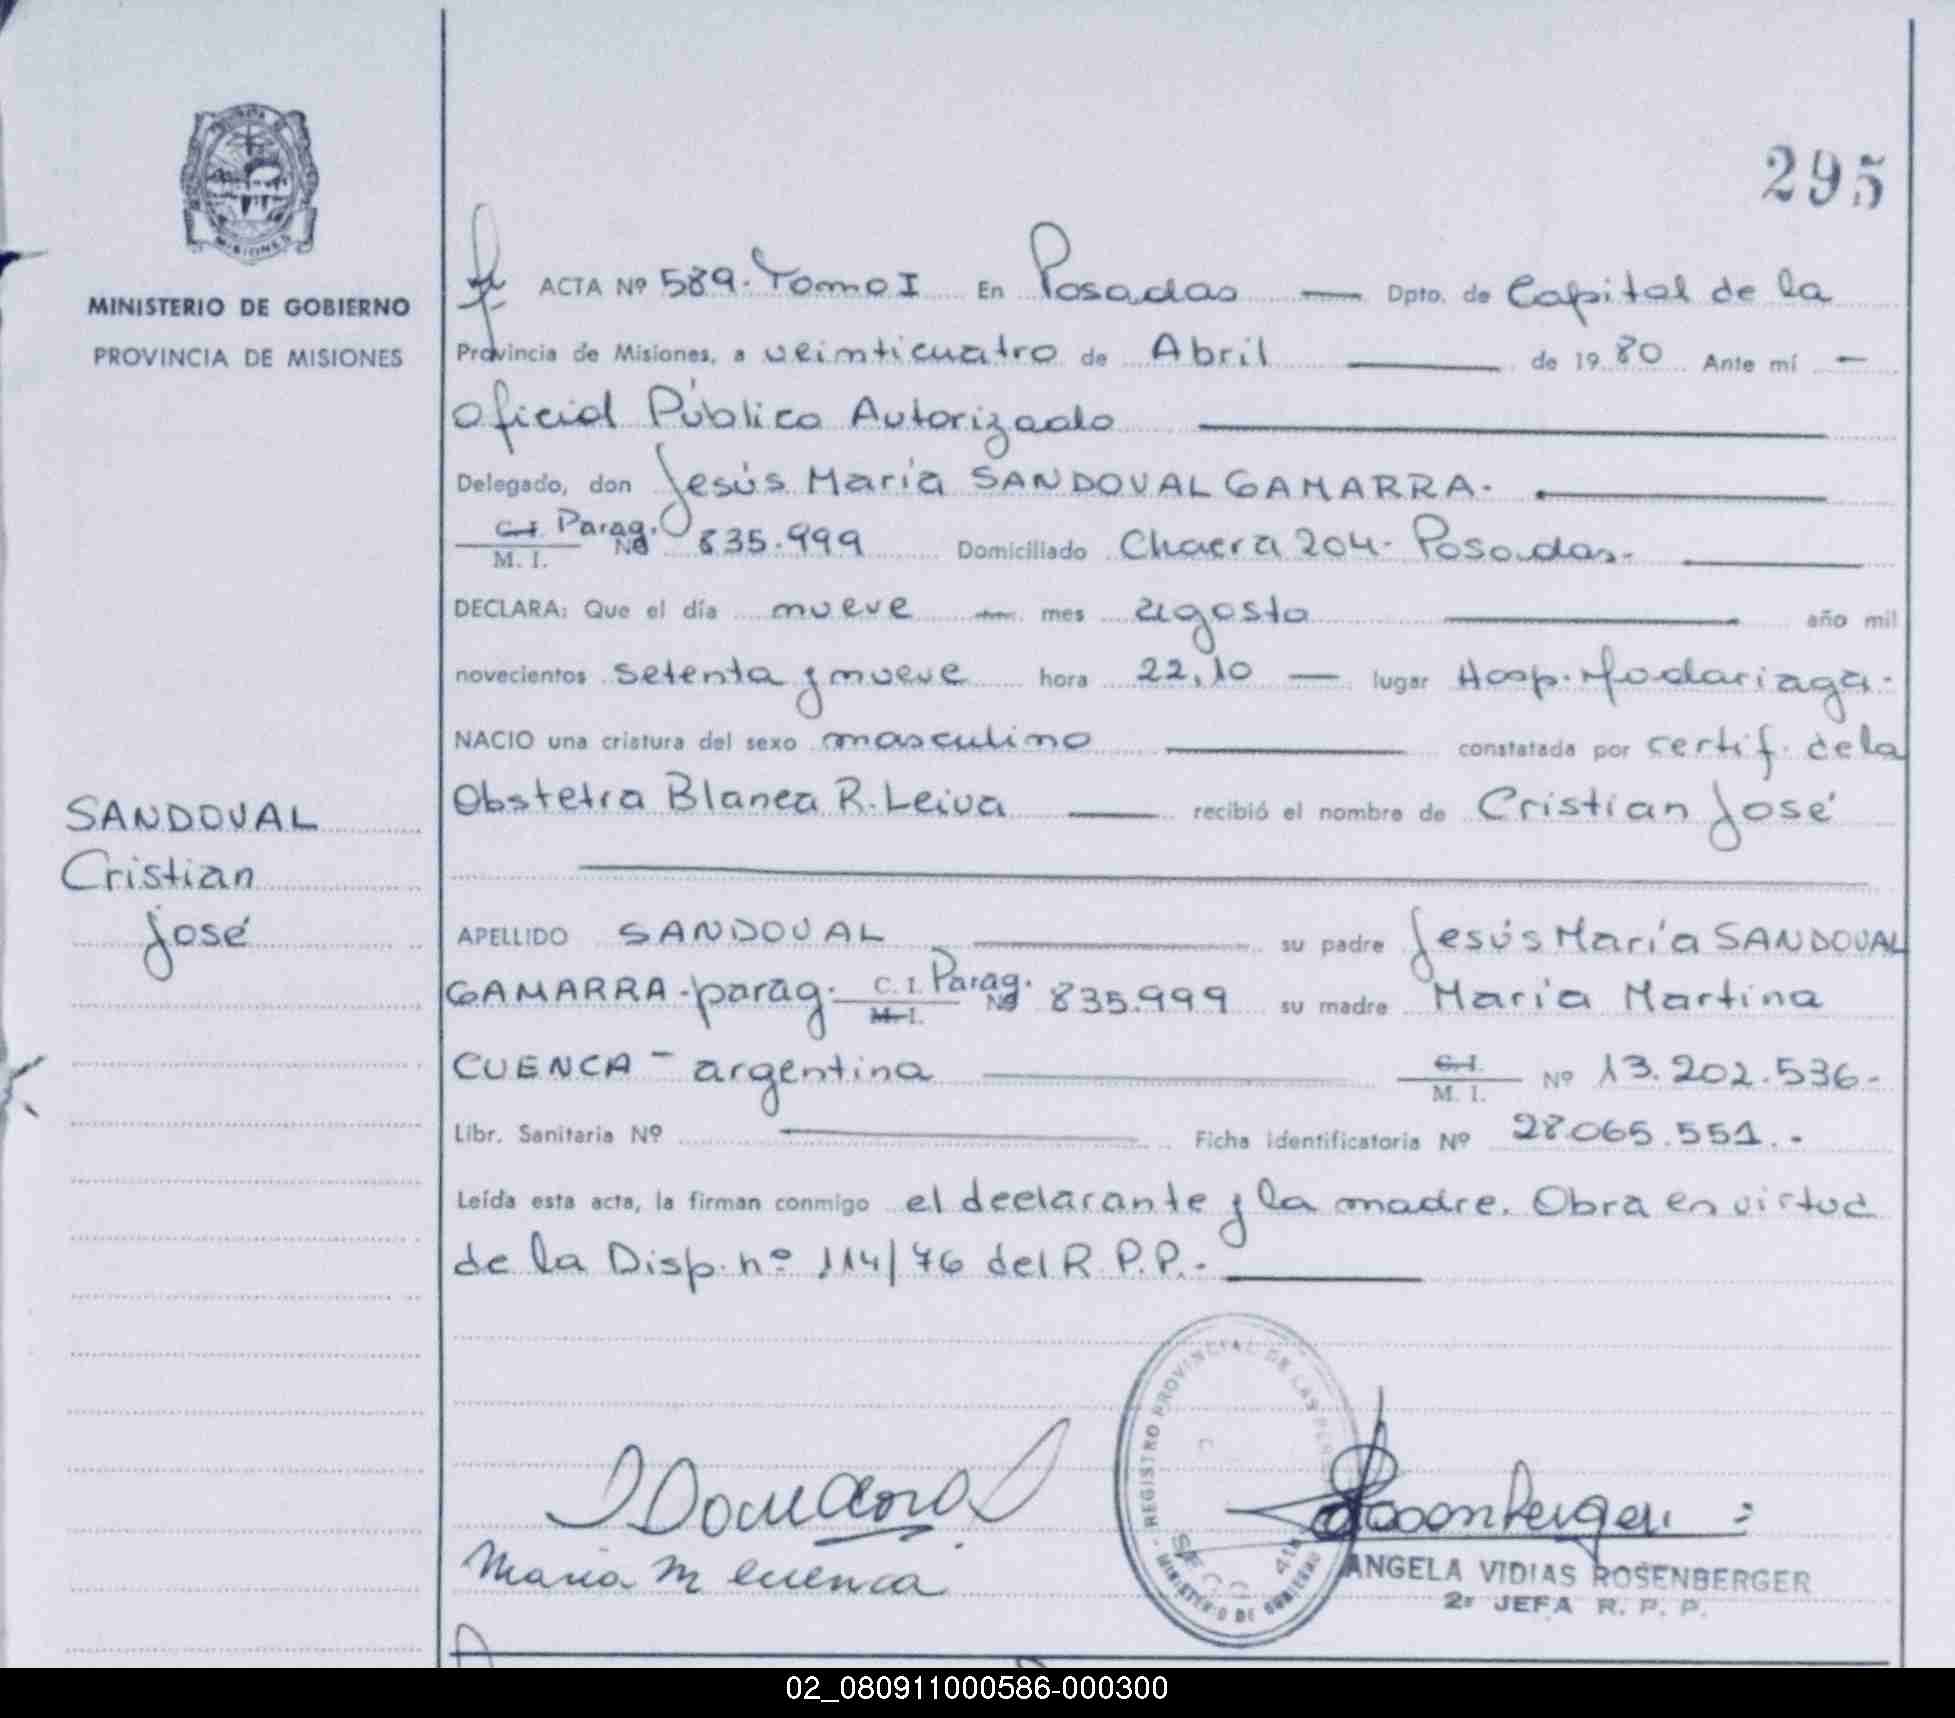 295
MISIONES
MINISTERIO DE GOBIERNO
PROVINCIA DE MISIONES
SANDOVAL
Cristian
José
ACTA Nº 589. Tomo I En Posadas Dpto. de Capital de la
Provincia de Misiones, a veinticuatro de Abril de 19 80 Ante mí
Oficial Público Autorizado
Delegado, don Jesús María SANDOVAL GAMARRA.
C.I. Parag.
M. I. Nº 835.999 Domiciliado Chacra 204. Posadas.
DECLARA: Que el día nueve mes agosto año mil
novecientos setenta y nueve hora 22,10 lugar Hosp. Madariaga.
NACIO una criatura del sexo masculino constatada por certif. de la
Obstetra Blanca R. Leiva recibió el nombre de Cristian José
APELLIDO SANDOVAL su padre Jesús María SANDOVAL
GAMARRA. parag. C.I. Parag. M. I. Nº 835.999 su madre María Martina
CUENCA - argentina C.I. M. I. Nº 13.202.536.-
Libr. Sanitaria Nº Ficha identificatoria Nº 28.065.551.-
Leída esta acta, la firman conmigo el declarante y la madre. Obra en virtud
de la Disp. nº 114/76 del R.P.P.-
REGISTRO PROVINCIAL DE LAS
MINISTERIO DE GOBIERNO
Maria M Cuenca
Rosenberger
ANGELA VIDIAS ROSENBERGER
2º JEFA R. P. P.
02_080911000586-000300